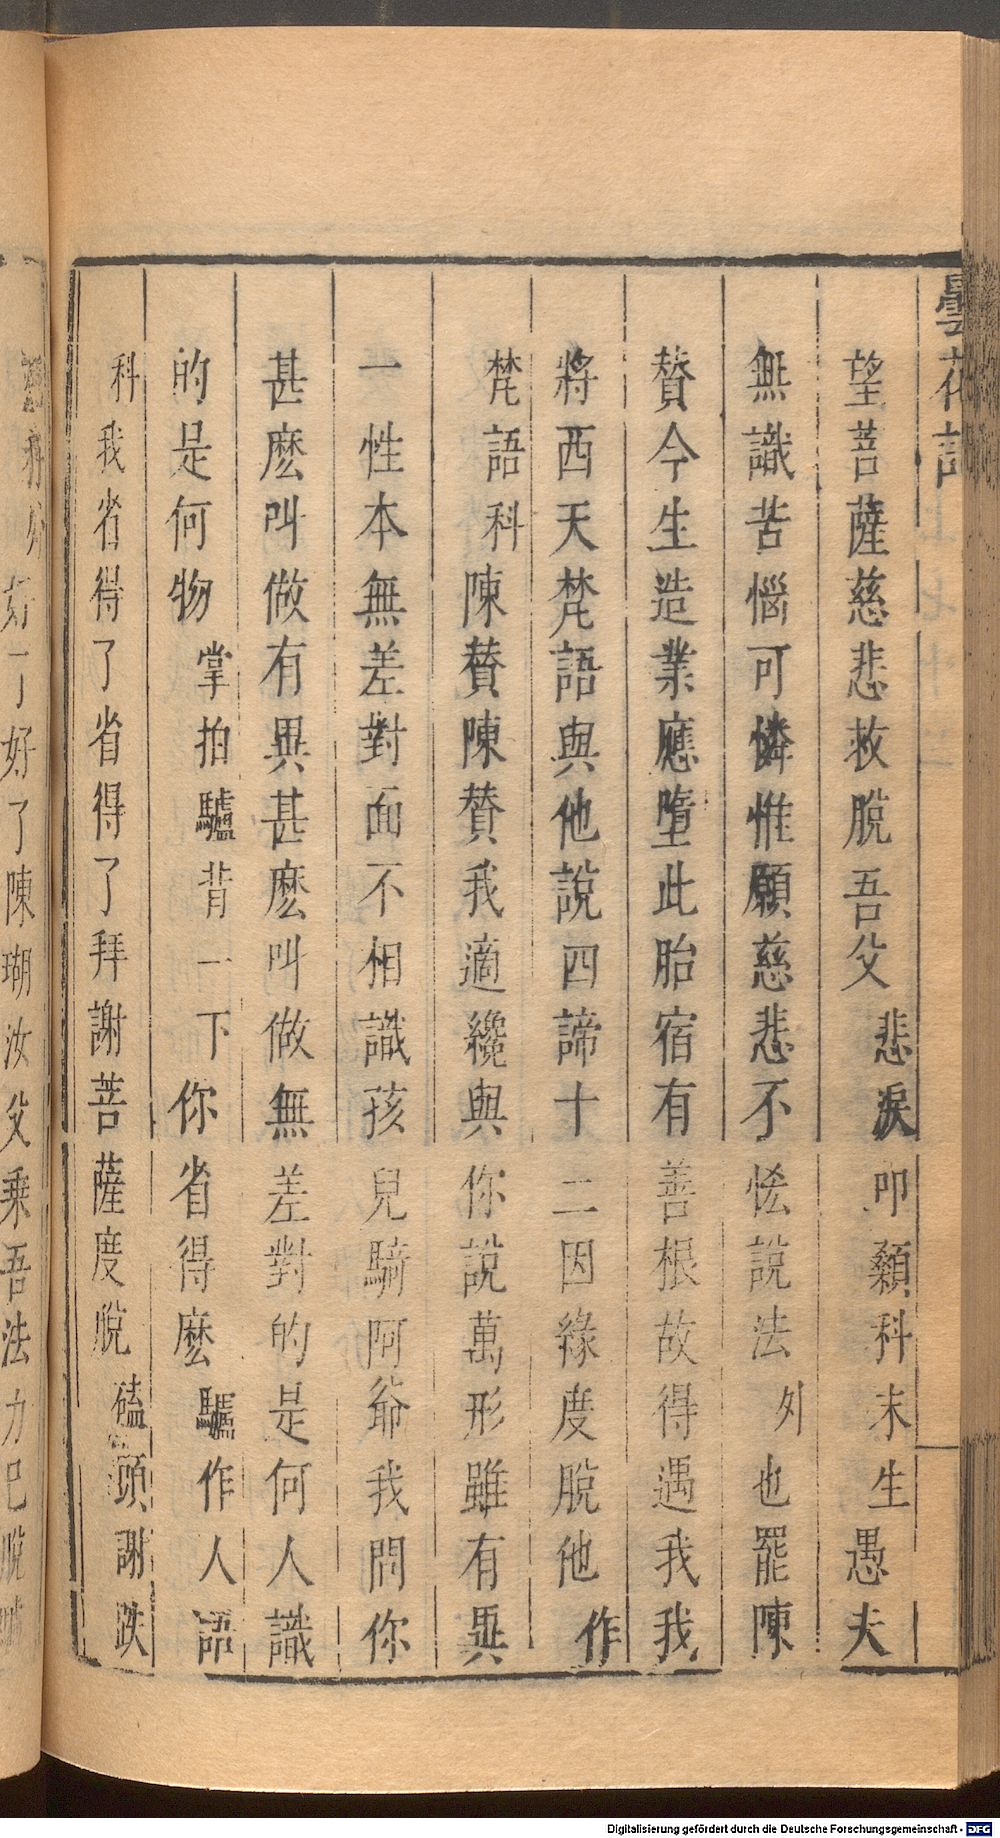 曇花記
望菩薩慈悲救脫吾父悲淚叩顙科末生愚夫
無識苦惱可憐惟願慈悲不恡說法外也罷陳
賛今生造業應墮此胎宿有善根故得遇我我
將西天梵語與他說四諦十二因緣度脫他作
梵語科陳賛陳賛我適纔與你說萬形雖有異
一性本無差對面不相識孩兒騎阿爺我問你
甚麽叫做有異甚麽叫做無差對的是何人識
的是何物掌拍驢背一下你省得麽驢作人語
科我省得了省得了拜謝菩薩度脫磕頭謝跌
好了好了陳瑚汝父乘吾法力已脫
Digitalisierung gefördert durch die Deutsche Forschungsgemeinschaft - DFG